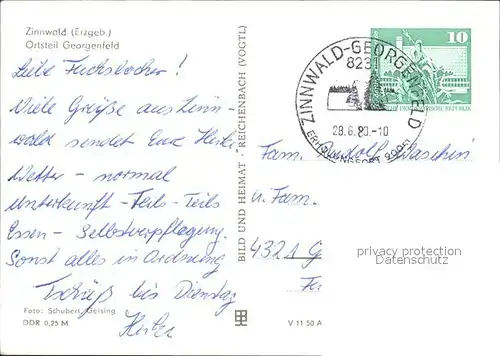 Zinnwald (Erzgeb.)
Ortsteil Georgenfeld
Liebe Fuchsbacher!
Viele Grüße aus Zinn-
wald sendet Euch Heike
Wetter – normal
Unterkunft – Teils-Teils
Essen – Selbstverpflegung.
Sonst alles in Ordnung
Tschüß bis Dienstag
Heike
Foto: Schubert, Geising
DDR 0,25 M
BILD UND HEIMAT · REICHENBACH (VOGTL)
V 11 50 A
ZINNWALD-GEORGENFELD
8231
28.6.80.-10
10
DEUTSCHE DEMOKRATISCHE REPUBLIK
Fam. Rudolf
u. Fam.
4321 G
privacy protection
Datenschutz